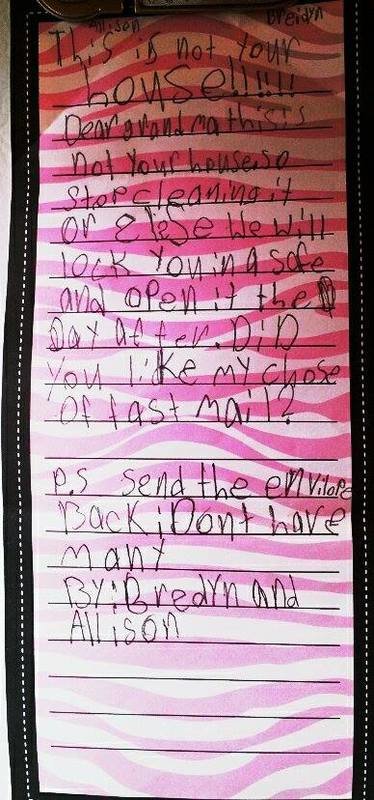 Allison Breidyn
This is not your
house!!!!!!
Dear grandma this is
not your house. so
stop cleaning it
or else we will
lock you in a safe
and open it the
Day after. DiD
you like my chose
of fast mail?
P.S send the envilope
Back i Dont have
many
By: Bredyn and
Allison